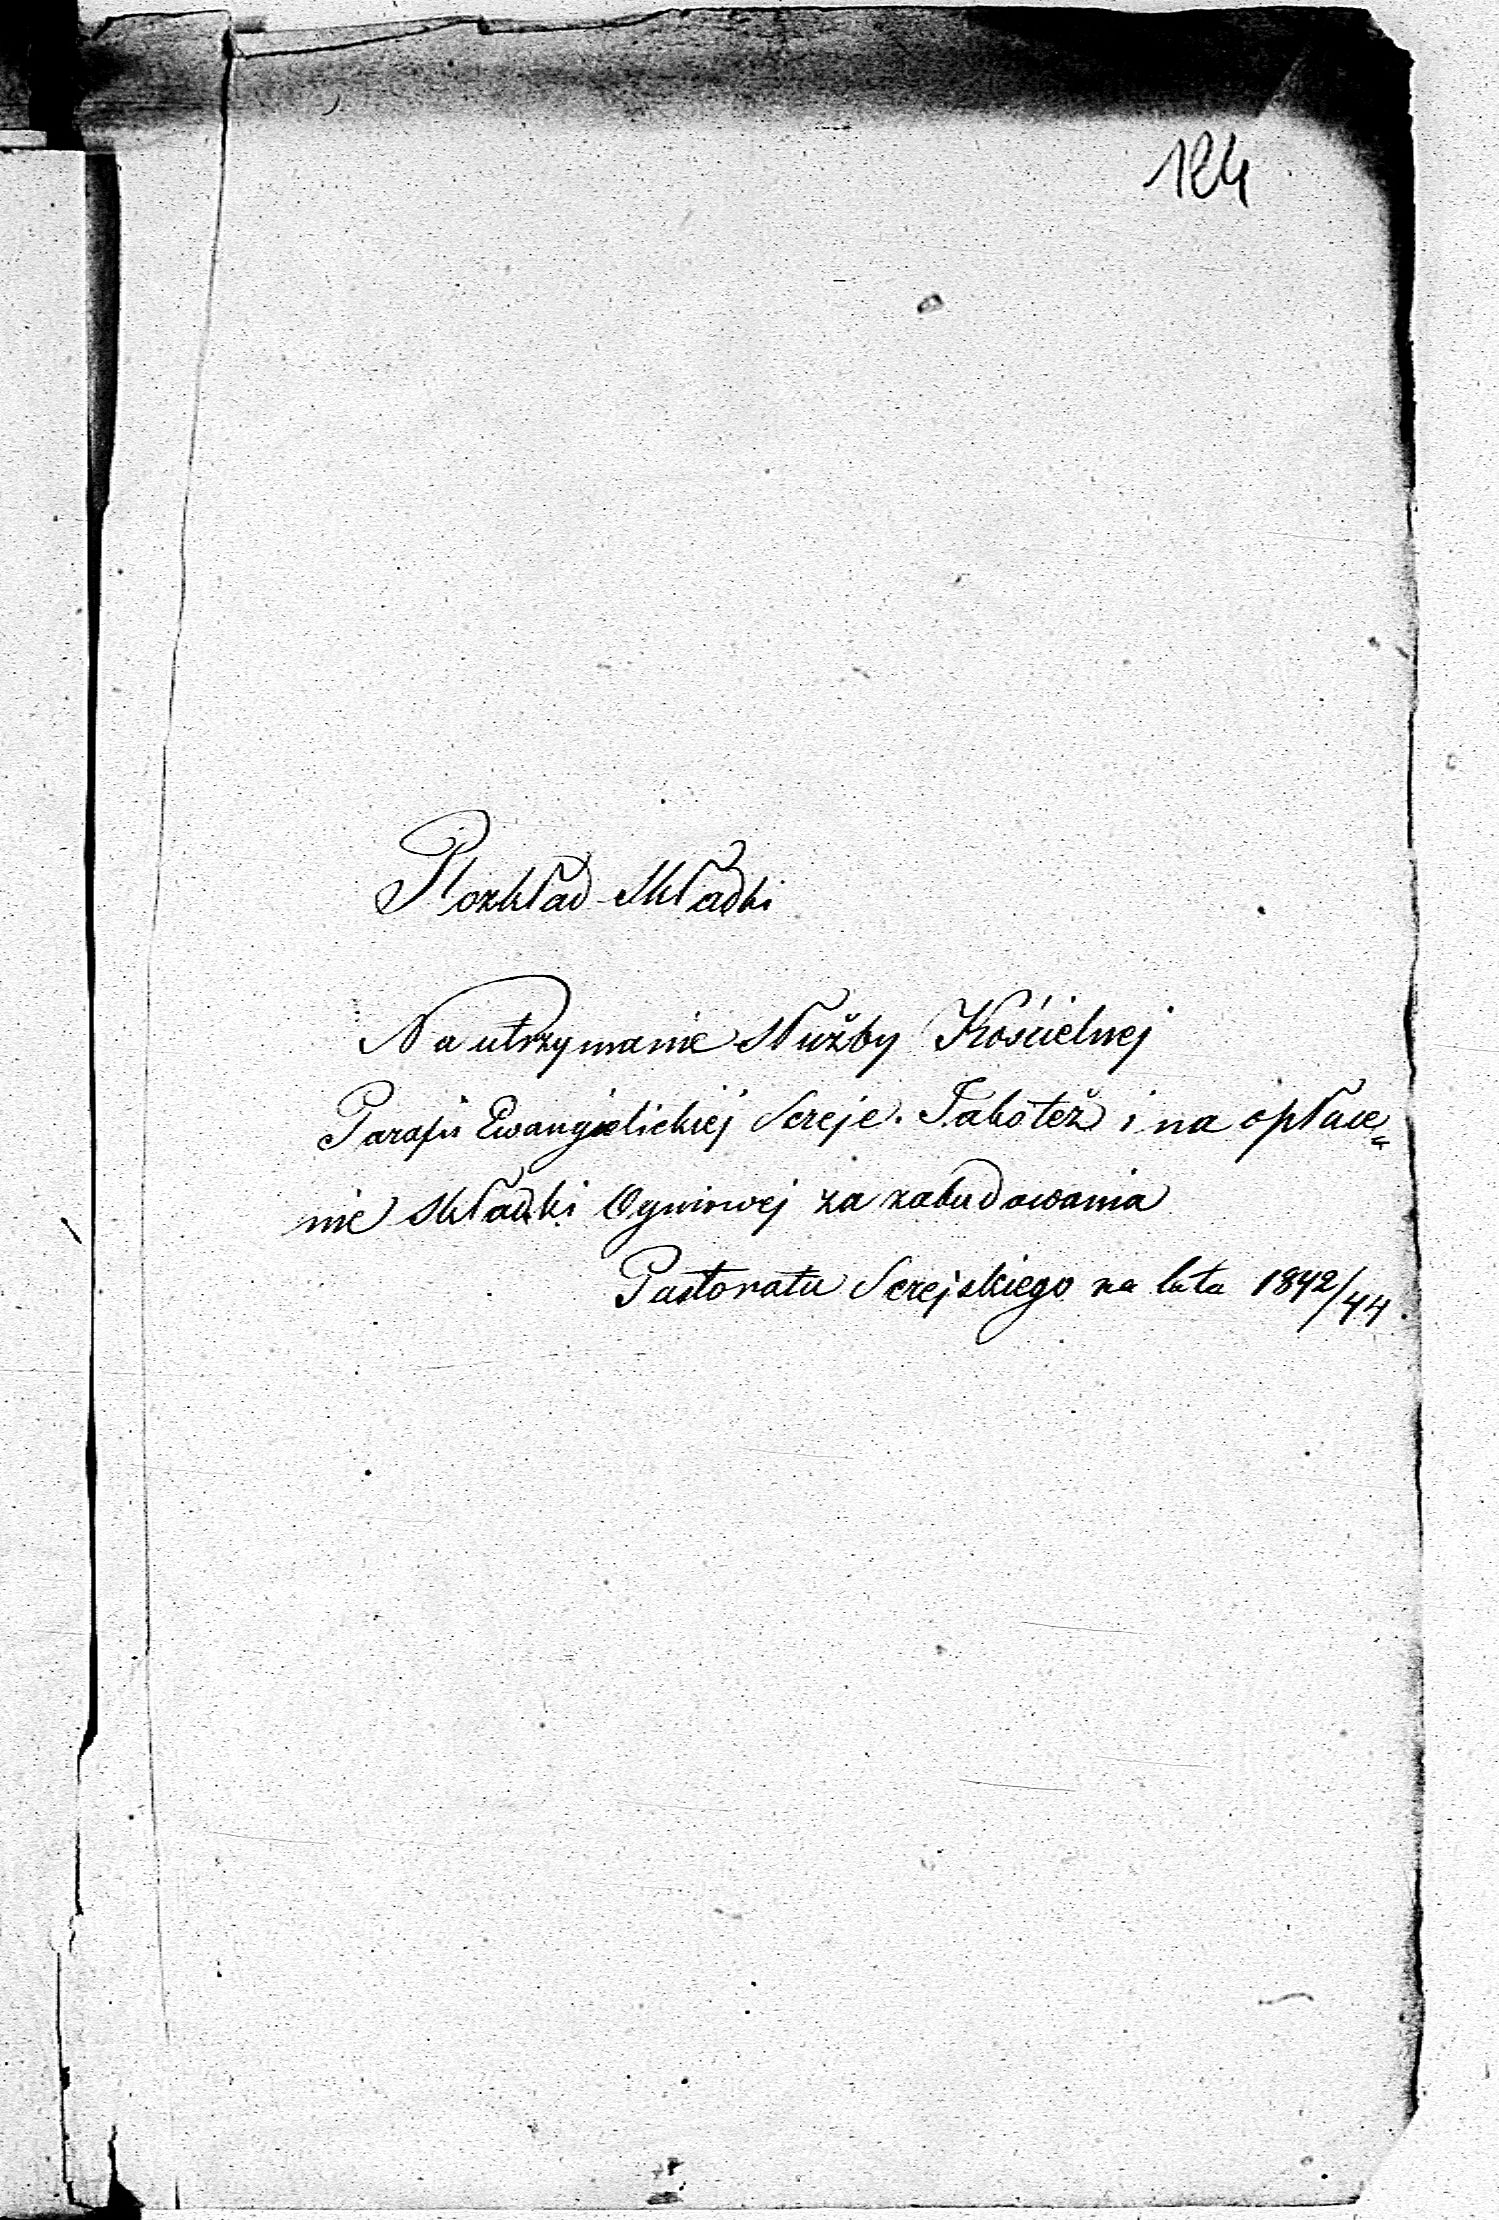 124
Rozkład Składki
Na utrzymanie Służby Kościelnej
Parafii Ewangielickiej Sereje. Jakoteż i na opłace=
nie Składki Ogniowej za zabudowania
Pastoratu Serejskiego na lata 1842/44.